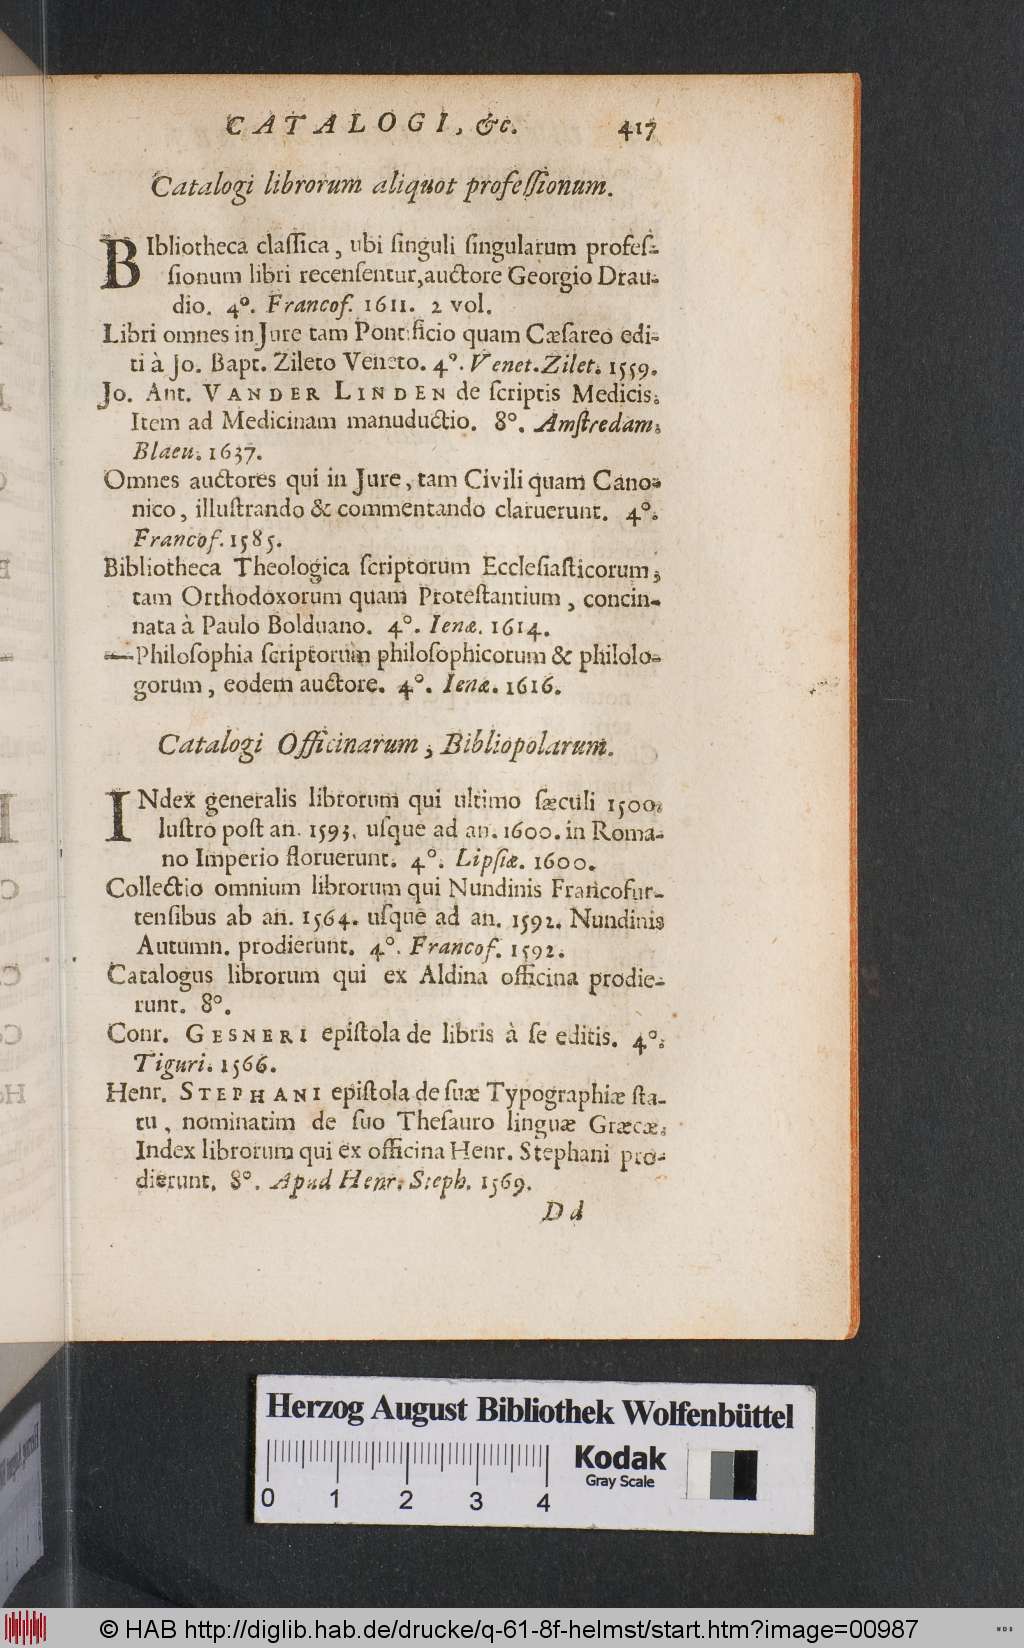 CATALOGI, &c. 417
Catalogi librorum aliquot profeſſionum.
BIbliotheca claſſica, ubi ſinguli ſingularum profeſ-
ſionum libri recenſentur, auctore Georgio Drau-
dio. 4°. Francof. 1611. 2 vol.
Libri omnes in Jure tam Pontificio quam Cæſareo edi-
ti à Jo. Bapt. Zileto Veneto. 4°. Venet. Zilet. 1559.
Jo. Ant. VANDER LINDEN de ſcriptis Medicis.
Item ad Medicinam manuductio. 8°. Amſtredam.
Blaeu. 1637.
Omnes auctores qui in Jure, tam Civili quam Cano-
nico, illuſtrando & commentando claruerunt. 4°.
Francof. 1585.
Bibliotheca Theologica ſcriptorum Eccleſiaſticorum,
tam Orthodoxorum quam Proteſtantium, concin-
nata à Paulo Bolduano. 4°. Ienæ. 1614.
—Philoſophia ſcriptorum philoſophicorum & philolo-
gorum, eodem auctore. 4°. Ienæ. 1616.
Catalogi Officinarum, Bibliopolarum.
INdex generalis librorum qui ultimo ſæculi 1500.
luſtro poſt an. 1593. uſque ad an. 1600. in Roma-
no Imperio floruerunt. 4°. Lipſiæ. 1600.
Collectio omnium librorum qui Nundinis Francofur-
tenſibus ab an. 1564. uſque ad an. 1592. Nundinis
Autumn. prodierunt. 4°. Francof. 1592.
Catalogus librorum qui ex Aldina officina prodie-
runt. 8°.
Conr. GESNERI epiſtola de libris à ſe editis. 4°.
Tiguri. 1566.
Henr. STEPHANI epiſtola de ſuæ Typographiæ ſta-
tu, nominatim de ſuo Theſauro linguæ Græcæ.
Index librorum qui ex officina Henr. Stephani pro-
dierunt. 8°. Apud Henr. Steph. 1569.
Dd
Herzog August Bibliothek Wolfenbüttel
Kodak
Gray Scale
0 1 2 3 4
© HAB http://diglib.hab.de/drucke/q-61-8f-helmst/start.htm?image=00987